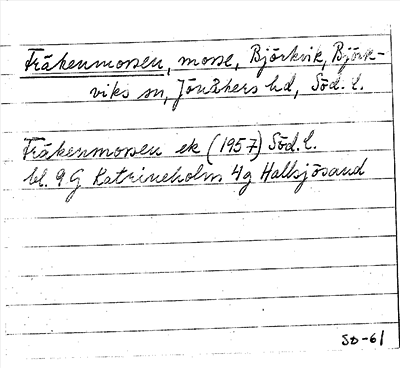 Fräkenmossen, mosse, Björkvik, Björk-
viks sn, Jönåkers hd, Söd. l.
Fräkenmossen ek (1957) Söd. l.
bl. 9 G Katrineholm 4g Hallsjösand
SD-61